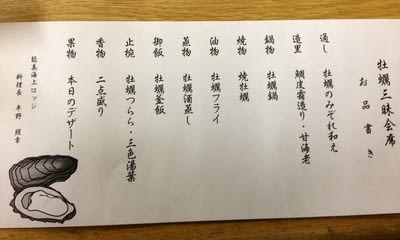 牡蠣三昧会席
お品書き
通し 牡蠣のみぞれ和え
造里 鯛皮霜造り・甘海老
鍋物 牡蠣鍋
焼物 焼牡蠣
油物 牡蠣フライ
蒸物 牡蠣酒蒸し
御飯 牡蠣釜飯
止椀 牡蠣つらら・三色湯葉
香物 二点盛り
果物 本日のデザート
能美海上ロッジ
料理長 平野